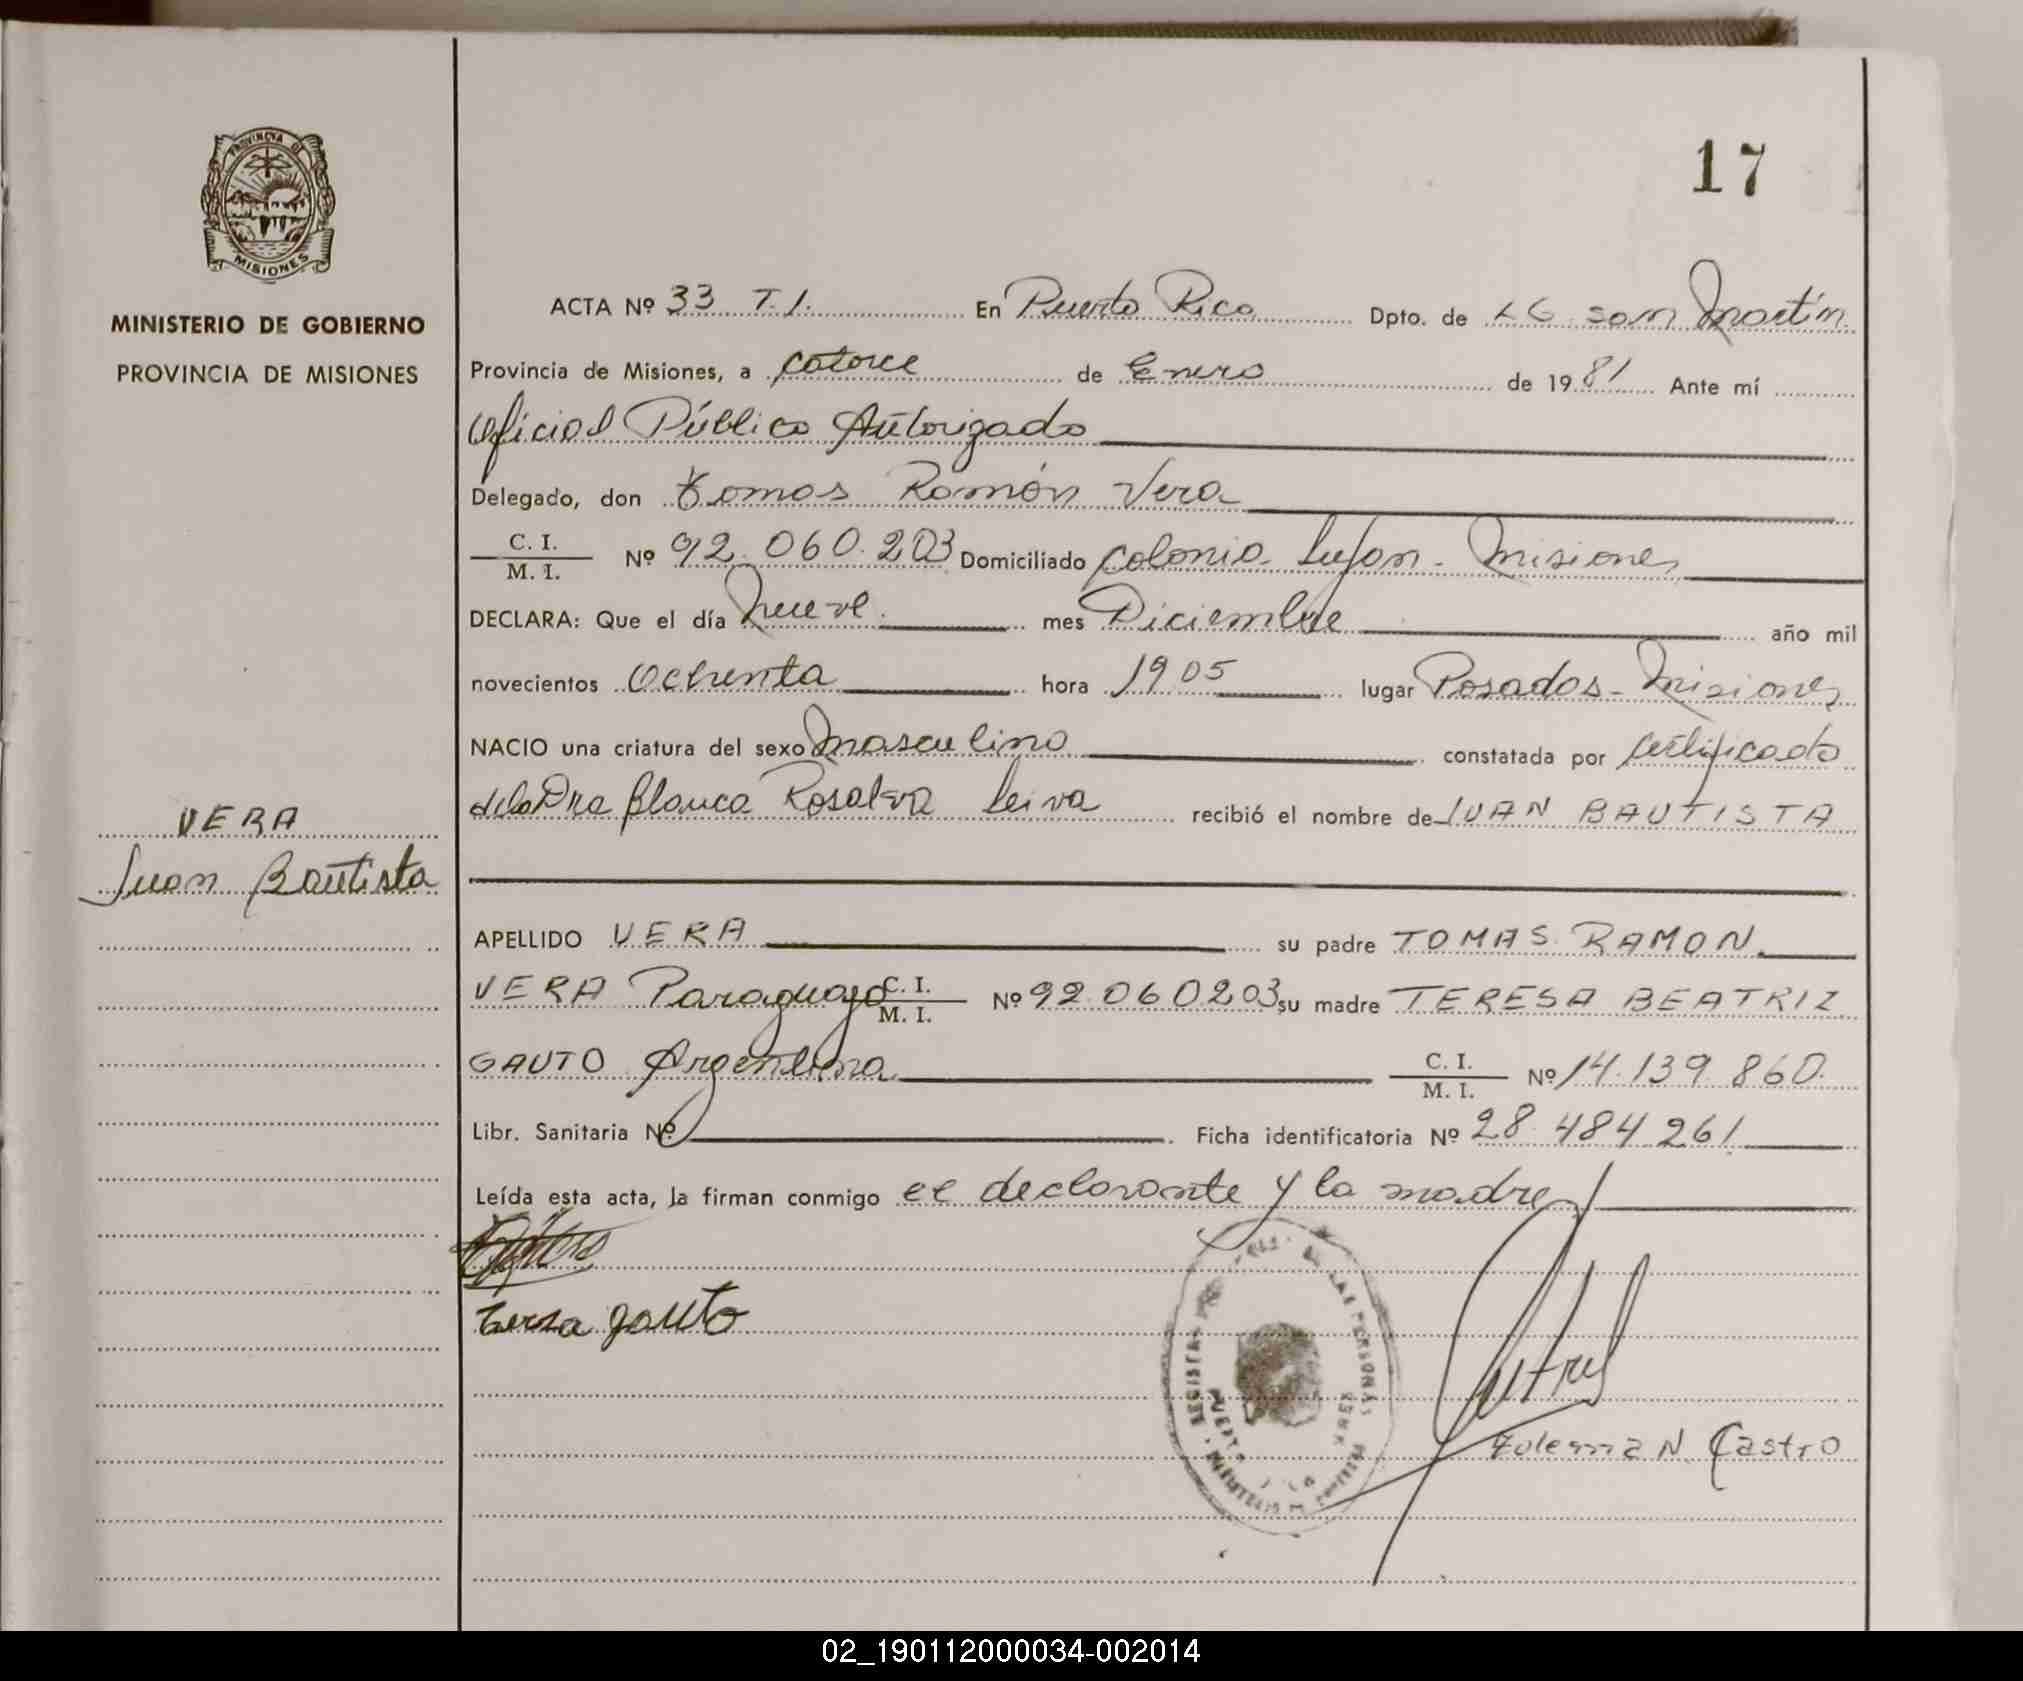 17
PROVINCIA DE
MISIONES
MINISTERIO DE GOBIERNO
PROVINCIA DE MISIONES
VERA
Juan Bautista
ACTA Nº 33 T.I. En Puerto Rico Dpto. de LG San Martín
Provincia de Misiones, a catorce de Enero de 1981 Ante mí
Oficial Público Autorizado
Delegado, don Tomas Ramón Vera
C. I. / M. I. Nº 92.060.203 Domiciliado Colonia Lujan - Misiones
DECLARA: Que el día Nueve mes Diciembre año mil
novecientos Ochenta hora 19 05 lugar Posadas - Misiones
NACIO una criatura del sexo Masculino constatada por certificado
de la Dra Blanca Rosalva Leiva recibió el nombre de JUAN BAUTISTA
APELLIDO VERA su padre TOMAS RAMON
VERA Paraguayo C. I. / M. I. Nº 92.060203 su madre TERESA BEATRIZ
GAUTO Argentina C. I. / M. I. Nº 14.139.860
Libr. Sanitaria Nº Ficha identificatoria Nº 28.484.261
Leída esta acta, la firman conmigo el declarante y la madre
Teresa Gauto
LAS PERSONAS
Zulema N. Castro
02_190112000034-002014